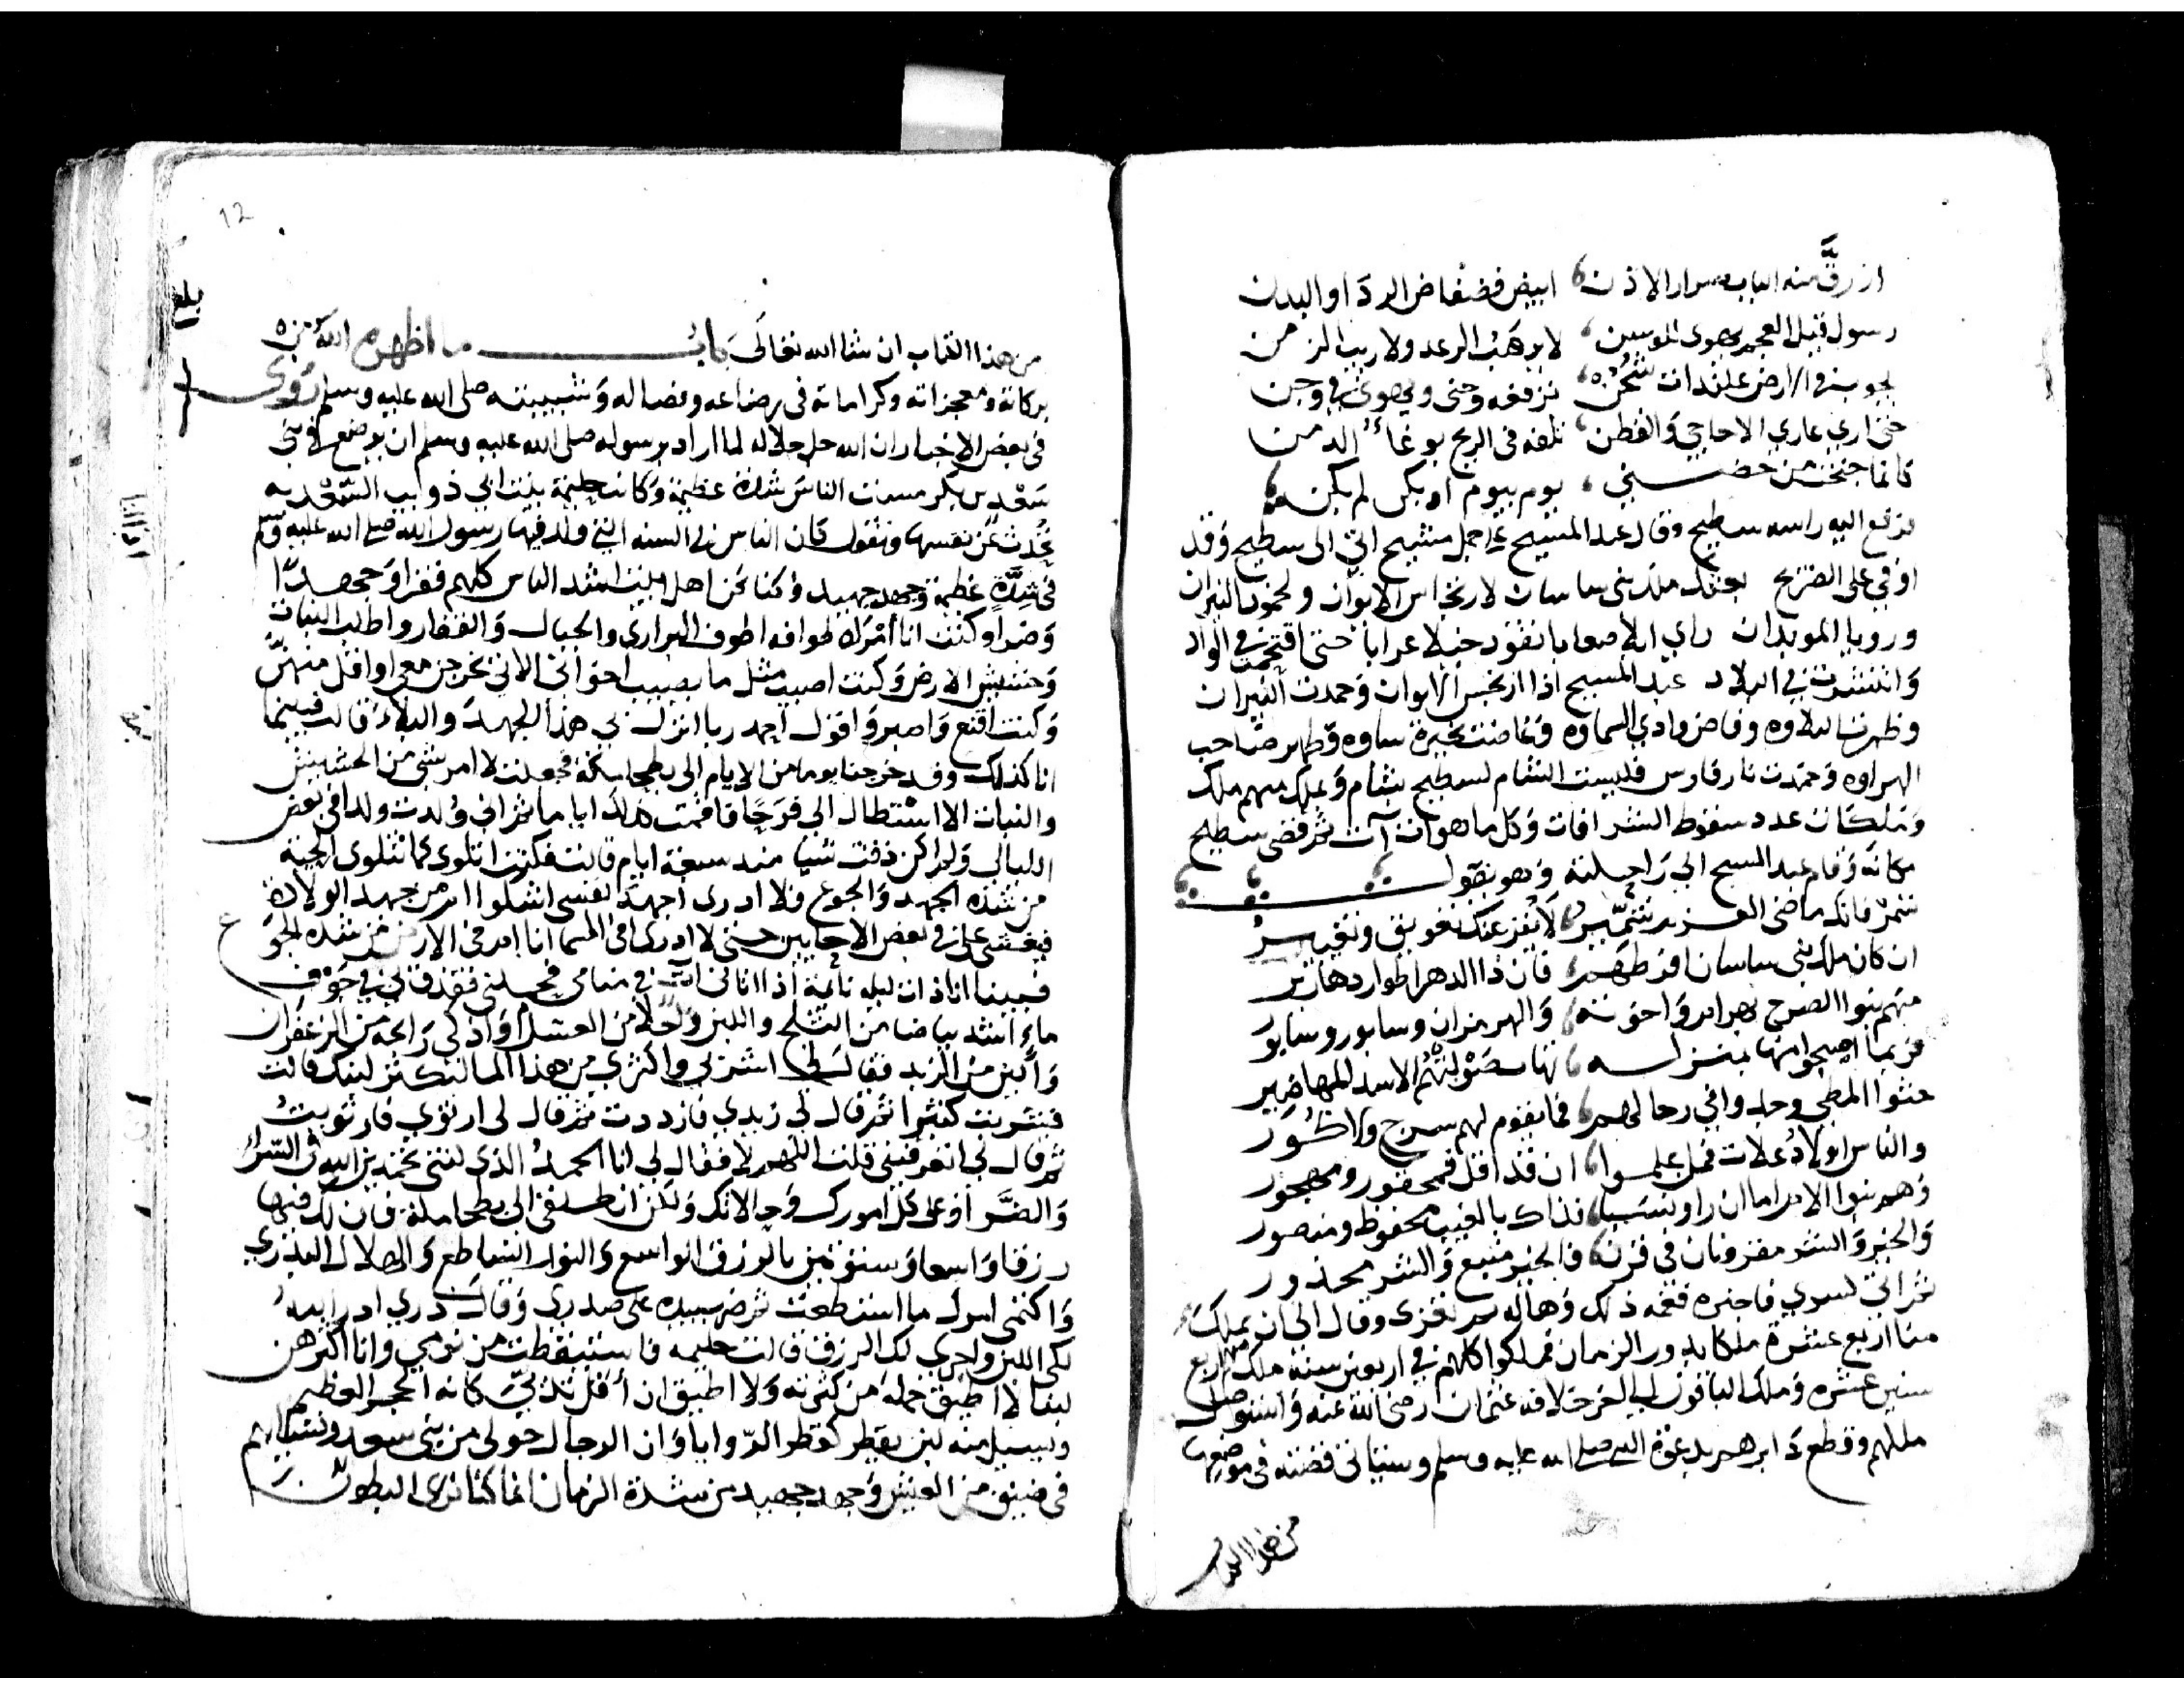 ازرق منه الناب صرار الاذن ابيض فضفاض الردا والبدن
رسول قيل العجم يهوى للوسن لا يرهب الرعد ولا ريب الزمن
يجوب في الارض علنداة شجن ترفعه وجن ويهوى في وجن
حتى ارى عارى الاحاجي والقطن تلفه فى الريح بوغاء الدمن
كانما حثحث من حضني يوم بيوم او بكن لم يكن
فرفع اليه راسه سطيح وقال عبد المسيح على جمل مشيح اتى الى سطيح وقد
اوفي على الضريح بعثك ملك بنى ساسان لارتجاس الايوان ولخمود النيران
ورويا الموبذان راى ابلا صعابا تقود خيلا عرابا حتى اقتحمت في الواد
وانتشرت في البلاد عبد المسيح اذا ارتجس الايوان وخمدت النيران
وظهرت التلاوه وفاض وادي السماوه وغاضت بحيرة ساوه وظهر صاحب
الهراوه وخمدت نار فارس فليست الشام لسطيح شام وتملك منهم ملك
وملكات عدد سقوط الشرافات وكل ما هو ات آت ثم قضى سطيح
مكانه وقام عبد المسيح الى راحلته وهو يقول
شمر فانك ماضى العزم شمير لا يفزعنك تفريق وتغيير
ان كان ملك بنى ساسان افرطهم فان ذا الدهر اطوار دهارير
منهم بنوا الصرح بهرام واخوته والهرمزان وسابور وسابور
فربما اصبحوا منها بمنزلة تهاب صولتهم الاسد المهاصير
حثوا المطي وجدوا في رحالهم فما يقوم لهم سرج ولا كور
والناس اولاد علات فمن علموا ان قد اقل فمحقور ومهجور
وهم بنوا الام اما ان راوا نشبا فذاك بالغيب محفوظ ومنصور
والخير والشر مقرونان في قرن فالخير متبع والشر محذور
ثم اتى كسرى فاخبره فغمه ذلك وهاله ثم تعزى وقال الى ان يملك
منا اربع عشرة ملكا يدور الزمان فملكوا كلهم في اربعين سنة ملك منهم اربع
سنين عشره وملك الباقون الي اخر خلافه عثمان رضى الله عنه واستوصل
ملكهم وقطع دابرهم بدعوة النبي صلى الله عليه وسلم وستاتى قصته فى موضعها
من هذا الكتاب
12
بلغ
من هذا الكتاب ان شا الله تعالى باب ما اظهره الله من
بركاته ومعجزاته وكراماته فى رضاعه وفصاله وشبيبته صلى الله عليه وسلم روى
فى بعض الاخبار ان الله جل جلاله لما اراد برسوله صلى الله عليه وسلم ان يوضع في بني
سعد بن بكر مست الناس شدة عظيمة وكانت حليمة بنت ابي ذويب السعديه
تحدث عن نفسها وتقول كان الناس في السنه التي ولد فيها رسول الله صلى الله عليه وسلم
فى شدة عظيمة وجهد جهيد وكنا نحن اهل بيت اشد الناس كلهم فقرا وجهدا
وضرا وكنت انا امراة طوافه اطوف البرارى والجبال والقفار واطلب النبات
وحشيش الارض وكنت اصيب مثل ما يصيب اخواتى الاتي يخرجن معى او اقل منهن
وكنت اقنع واصبر واقول احمد ربا انزل بي هذا الجهد والبلاء قالت فبينما
انا كذلك وقد خرجنا يوما من الايام الى بطحا مكة فجعلت لا امر بشى من الحشيش
والنبات الا استطال الى فرحا فاقمت كذلك اياما ثم انى ولدت ولدا فى بعض
الليالى ولم اكن ذقت شيا منذ سبعة ايام قالت فكنت اتلوى كما تتلوى الحية
من شدة الجهد والجوع فلا ادرى اجهد نفسى اشكوا ام من جهد الولادة
فيغشى علي في بعض الاحايين حتى لا ادرى افى السما انا ام فى الارض من شده الجوع
فبينا انا ذات ليله نائمة اذ اتانى آت في منامى فحملنى فقذف بي في جوف
ماء اشد بياضا من الثلج واللبن واحلا من العسل واذكى رائحة من الزعفران
والين من الزبد فقال لي اشربي واكثرى من هذا الما ليكثر لبنك قالت
فشربت كثيرا ثم قال لي زيدي فازددت ثم قال لى ارتوي فارتويت
ثم قال لي اتعرفيني قلت اللهم لا فقال لي انا الحمد الذى كنتي تحمدين الله في السراء
والضراء وعلى كل امورك وحالاتك ولكن انطلقى الى بطحا مكة فان لك فيها
رزقا واسعا وستوتين بالرزق الواسع والنور الساطع والهلال البدري
واكتمى امرك ما استطعت ثم ضرب بيده على صدرى وقال دري ادر الله
لكى اللبن واجرى لك الرزق قالت حليمه فاستيقظت من نومي وانا اكثرهن
لبنا لا اطيق حمله من كثرته ولا اطيق ان اقل ثديي كانه الحجر العظيم
ويسيل منه لبن يقطر كقطر الروايا وان الرجال حولى من بنى سعد ونسايهم
فى ضيق من العيش وجهد جهيد من شدة الزمان انما كنا نرى البطون